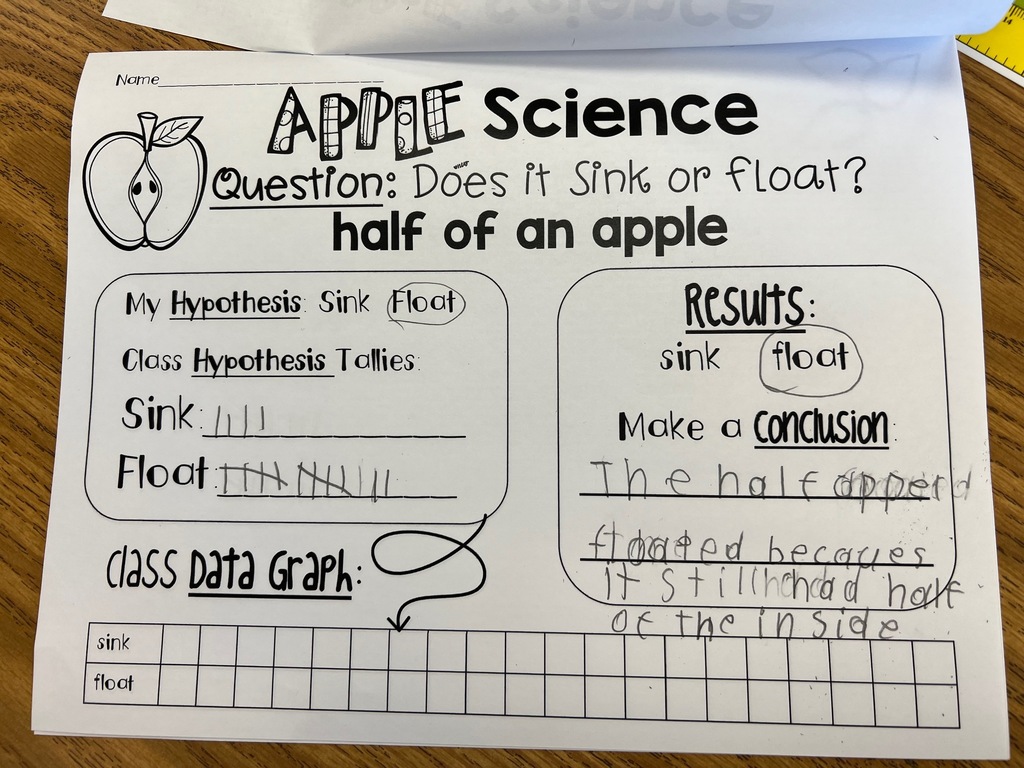 Name
APPLE Science
Question: Does it Sink or float?
half of an apple
My Hypothesis: Sink Float
Class Hypothesis Tallies:
Sink:
Float:
Class Data Graph:
sink
float
Results:
sink float
Make a conclusion:
The half apper
floated becaues
it still had half
of the inside